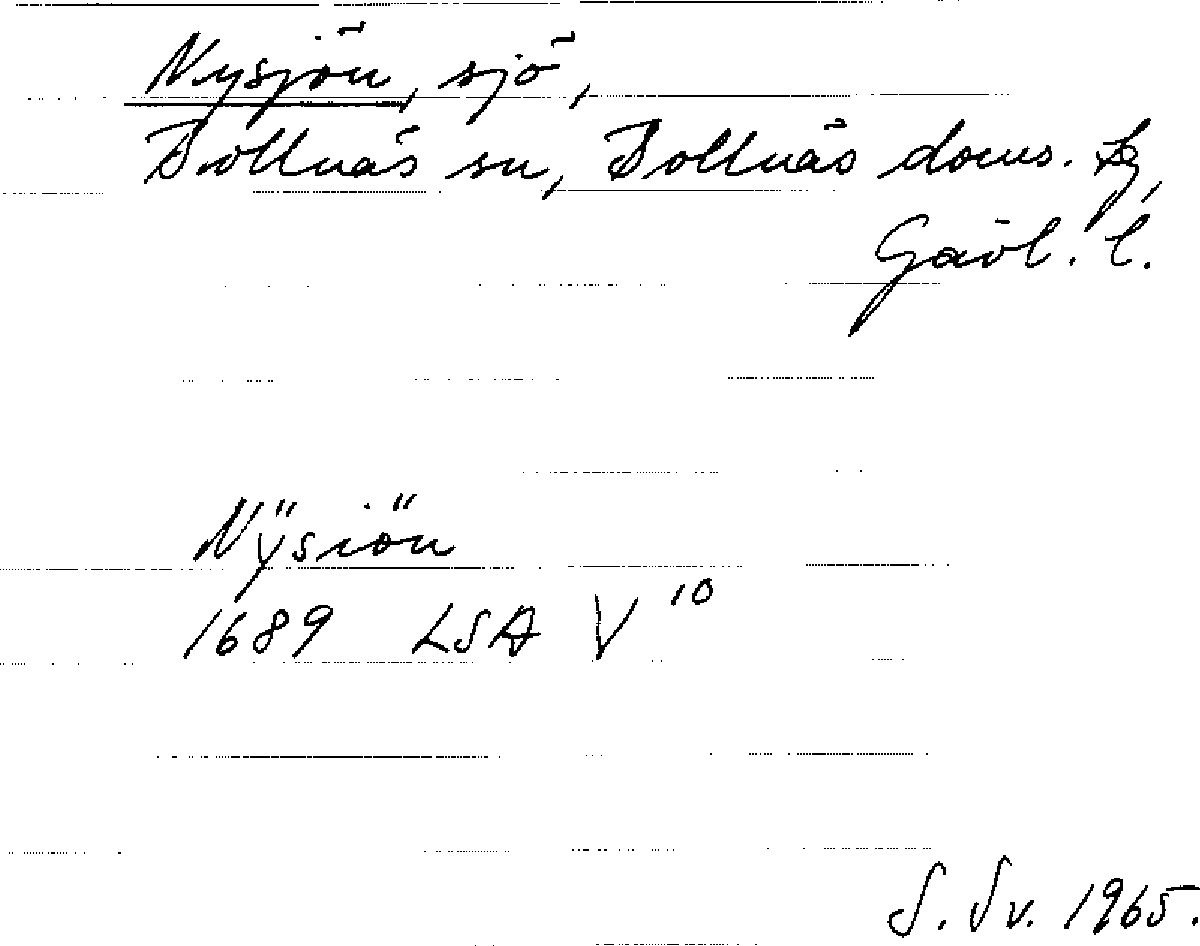 Nysjön, sjö,
Bollnäs sn, Bollnäs doms. tg,
Gävl. l.
Nÿsiön
1689 LSA V 10
S. Sv. 1965.